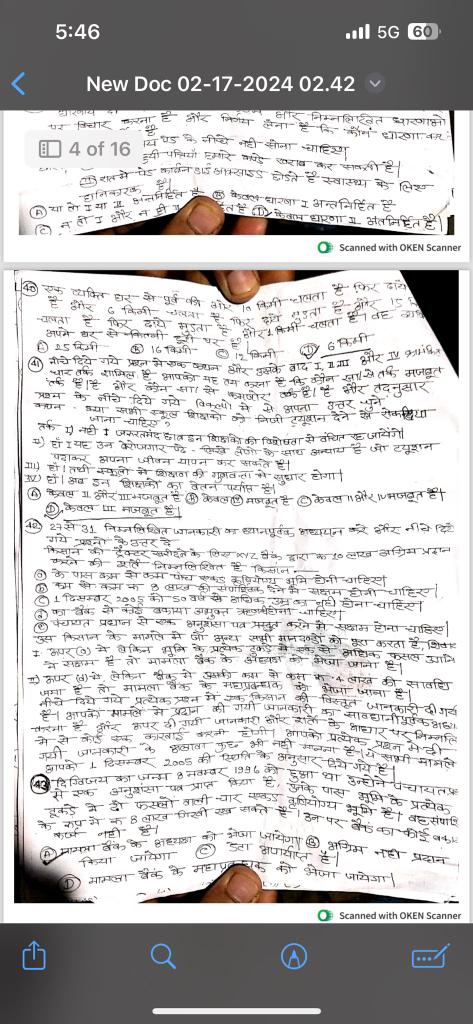 5:46
5G 60
New Doc 02-17-2024 02.42
4 of 16
पर विचार करना है और निर्णय लेना है कि कौन धारणा
पेड़ के नीचे नहीं सोना चाहिए।
हानिकारक है।
(A) या तो I या II अन्तर्निहित है (B) केवल धारणा I अन्तर्निहित है
(C) न तो I और न ही (D) केवल धारणा II अंतर्निहित है।
Scanned with OKEN Scanner
(40) एक व्यक्ति घर से पूर्व की ओर किमी चलता है फिर दायें
है और 6 किमी चलता है फिर दायें मुड़ता है और 15
चलता है फिर दायें मुड़ता है और 1 किमी चलता है। वह
अपने घर से कितनी दूरी पर है
15 किमी (B) 16 किमी (C) 12 किमी (D) 6 किमी
(41) नीचे दिये गये प्रश्न में एक कथन और उसके बाद I, II, III और IV क्रमांकित
चार तर्क शामिल है, आपको यह तय करना है कि कौन सा/से तर्क मजबूत
तर्क है/हैं और कौन सा/से कमजोर तर्क है/हैं और तदनुसार
प्रश्न के नीचे दिये गये विकल्पों में से अपना उत्तर चुने
कथन - क्या सभी स्कूल शिक्षकों को निजी ट्यूशन देने से रोक दिया
जाना चाहिए?
तर्क I) नहीं। जरूरतमंद छात्र इन शिक्षकों की विशेषता से वंचित रह जायेंगे।
II) हाँ। यह उन बेरोजगार पढ़े-लिखे लोगों के साथ अन्याय है जो ट्यूशन
पढाकर अपना जीवन यापन कर सकते हैं।
III) हाँ। तभी स्कूलों में शिक्षण की गुणवत्ता में सुधार होगा।
IV) हाँ। अब इन शिक्षकों का वेतन पर्याप्त है।
(A) केवल II और III मजबूत है (B) केवल मजबूत है (C) केवल II और IV मजबूत है।
(D) केवल III मजबूत है।
(42) 27 से 31 निम्नलिखित जानकारी का ध्यानपूर्वक अध्ययन करे और नीचे दिये
गये प्रश्नों के उत्तर दे
किसान को ट्रैक्टर खरीदने के लिए XYZ बैंक द्वारा रू 10 लाख अग्रिम प्रदान
करने की शर्तें निम्नलिखित है किसान-
(a) के पास कम से कम पांच एकड़ कृषियोग्य भूमि होनी चाहिए।
(b) कम से कम रू 8 लाख की संपार्श्विक देने में सक्षम होनी चाहिए।
(c) 1 दिसम्बर 2005 को 50 वर्ष से अधिक उम्र का नहीं होना चाहिए।
(d) का बैंक से कोई बकाया ऋण नहीं होना चाहिए।
(e) पंचायत प्रधान से एक अनुशंसा पत्र प्रस्तुत करने में सक्षम होना चाहिए।
उस किसान के मामले में जो अन्य सभी मानदण्डों को पूरा करता है, सिवाय
I. ऊपर (a) में लेकिन भूमि के प्रत्येक टुकड़े में एक से अधिक फसल उगाने
में सक्षम है तो मामला बैंक के अध्यक्ष को भेजा जाना है।
II) ऊपर (b) में लेकिन बैंक में उसकी कम से कम रू 4 लाख की सावधि
जमा है तो मामला बैंक के महाप्रबन्धक को भेजा जाना है।
नीचे दिये गये प्रत्येक प्रश्न में एक किसान की विस्तृत जानकारी दी गयी
है। आपको मामले में प्रदान की गयी जानकारी का सावधानीपूर्वक
करना है और ऊपर दी गयी जानकारी और शर्तों के आधार पर निम्नलि
में से कोई एक कारवाई करनी होगी। आपको प्रत्येक प्रश्न में दी
गयी जानकारी के अलावा कुछ भी नहीं मानना है। ये सभी मामले
आपको 1 दिसम्बर 2005 की स्थिति के अनुसार दिये गये है।
(43) दिग्विजय का जन्म 8 नवम्बर 1996 को हुआ था उन्होंने पंचायत प्र
से एक अनुशंसा पत्र प्राप्त किया है, उनके पास भूमि के प्रत्येक
टुकड़े में दो फसलों वाली चार एकड़ कृषियोग्य भूमि है। वह संपार्श्वि
के रूप में रू 8 लाख गिरवी रख सकते है। उन पर बैंक का कोई बका
कर्ज नहीं है।
(A) मामला बैंक के अध्यक्ष को भेजा जायेगा। (B) अग्रिम नहीं प्रदान
किया जायेगा (C) डेटा अपर्याप्त है।
(D) मामला बैंक के महाप्रबन्धक को भेजा जायेगा।
Scanned with OKEN Scanner